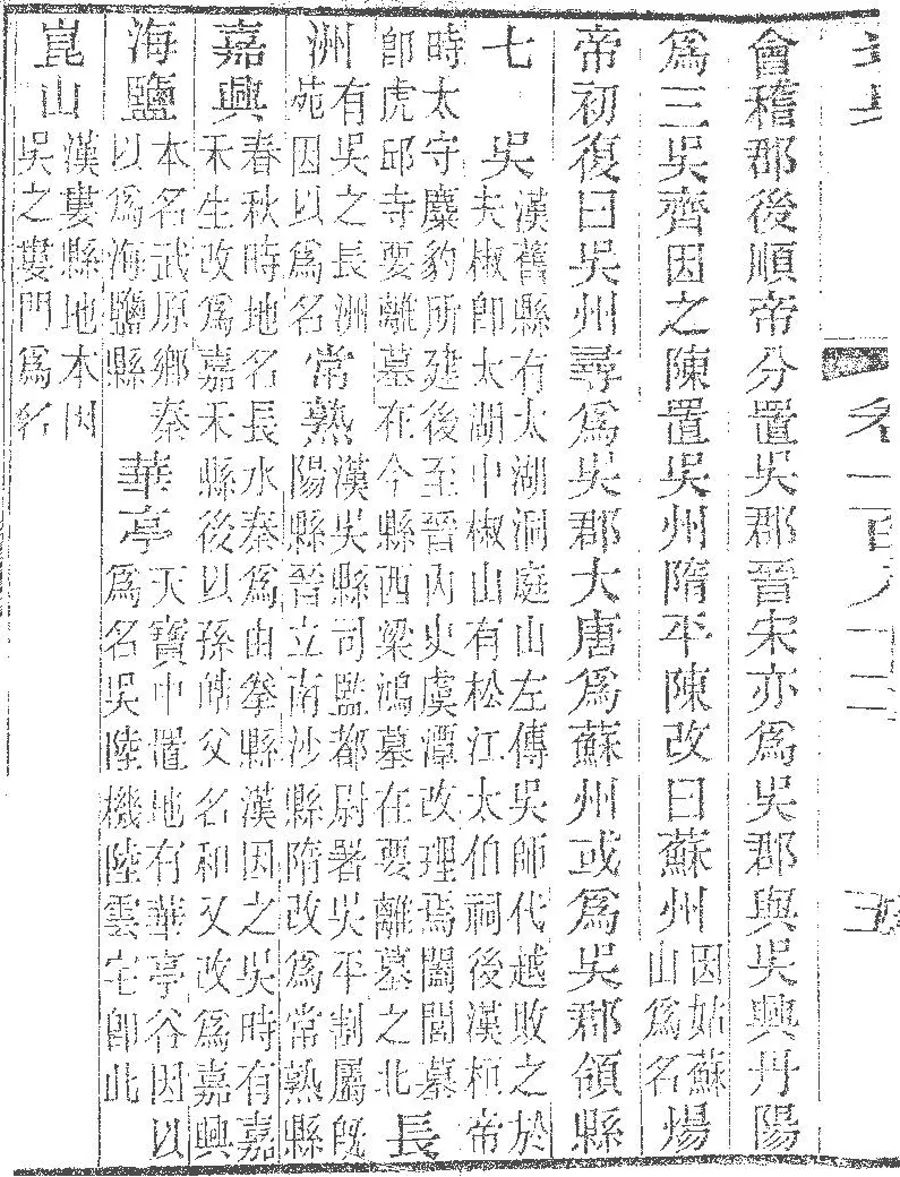 會稽郡後順帝分置吳郡晉宋亦爲吳郡與吳興丹陽
爲三吳齊因之陳置吳州隋平陳改曰蘇州因姑蘇山爲名煬
帝初復曰吳州尋爲吳郡大唐爲蘇州或爲吳郡領縣
七 吳漢舊縣有太湖洞庭山左傳吳師代越敗之於夫椒卽太湖中椒山有松江太伯祠後漢桓帝
時太守麋豹所建後至晉內史虞潭改理焉闔閭墓卽虎邱寺要離墓在今縣西梁鴻墓在要離墓之北長
洲有吳之長洲苑因以爲名常熟漢吳縣司監都尉署吳平制屬旣陽縣晉立南沙縣隋改爲常熟縣
嘉興春秋時地名長水秦爲由拳縣漢因之吳時有嘉禾生改爲嘉禾縣後以孫皓父名和又改爲嘉興
海鹽本名武原鄉秦以爲海鹽縣華亭天寶中置地有華亭谷因以爲名吳陸機陸雲宅卽此
崑山漢婁縣地本因吳之婁門爲名